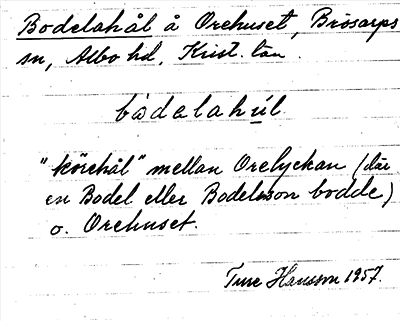 Bodelahål å Orehuset, Brösarps
sn, Albo hd, Krist. län.
bòdelahų́l
"körehål" mellan Orelyckan (där
en Bodel eller Bodelsson bodde)
o. Orehuset.
Ture Hansson 1957.